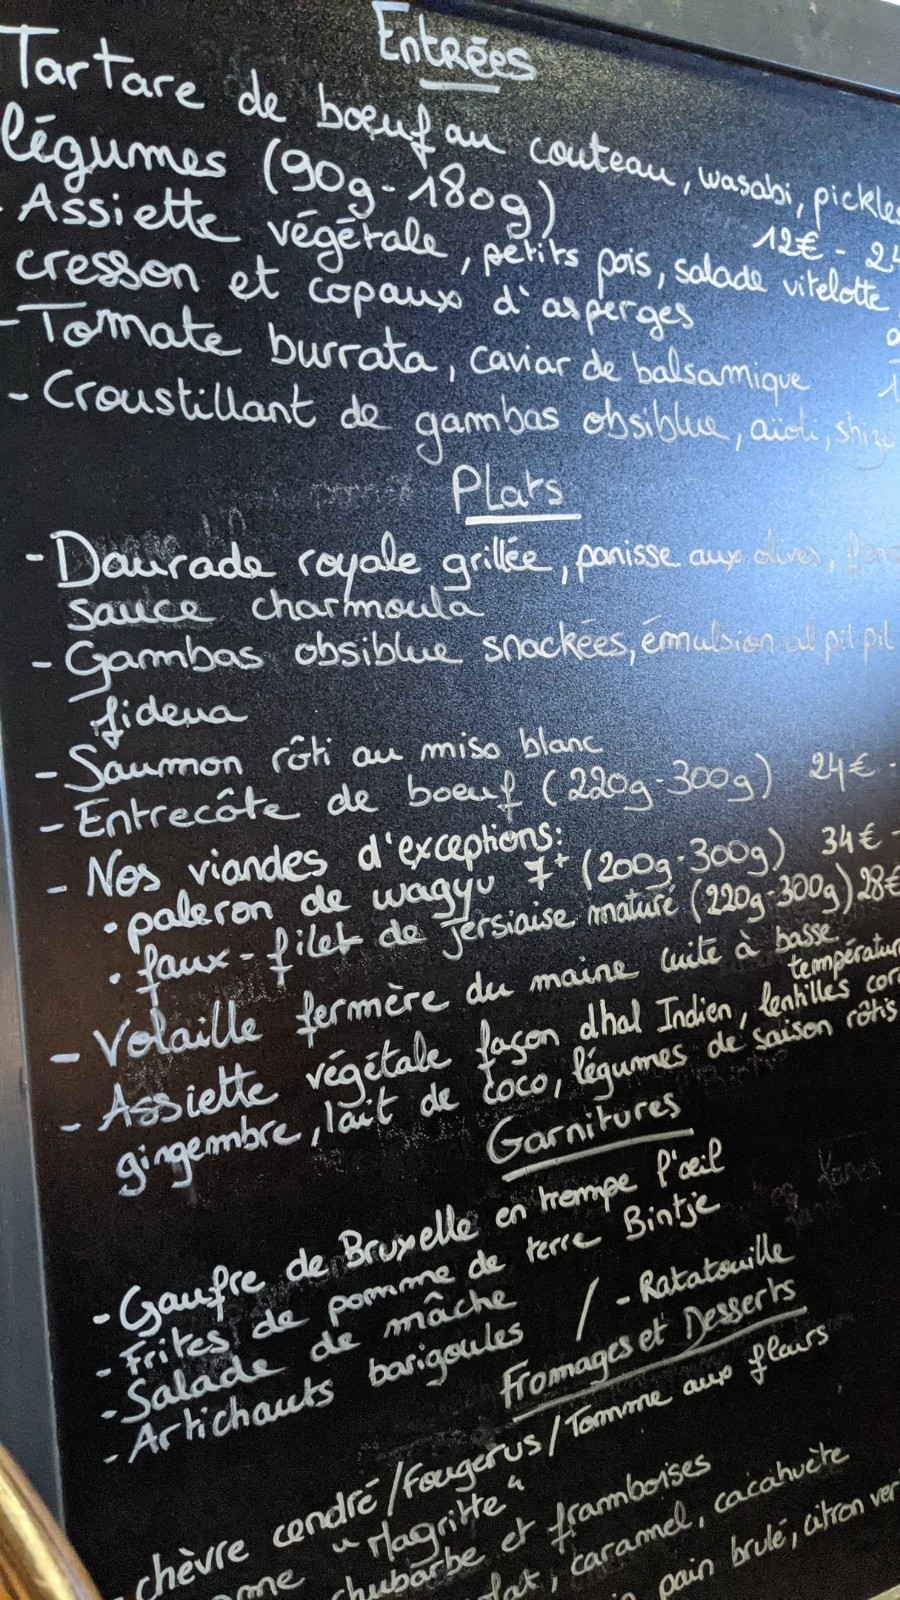 Entrées
Tartare de bœuf au couteau, wasabi, pickles
légumes (90g-180g)
12€ - 24
- Assiette végétale, petits pois, salade vitelotte,
cresson et copaux d'asperges
- Tomate burrata, caviar de balsamique
- Croustillant de gambas obsiblue, aïoli,
Plats
- Daurade royale grillée, panisse aux olives,
sauce charmoula
- Gambas obsiblue snackées, émulsion al pil pil
fideua
- Saumon rôti au miso blanc
- Entrecôte de boeuf (220g-300g) 24€ -
- Nos viandes d'exceptions:
• paleron de wagyu 7+ (200g-300g) 34€ -
• faux-filet de jersiaise maturé (220g-300g) 28€
- Volaille fermère du maine cuite à basse
températur
- Assiette végétale façon dhal Indien, lentilles cor
gingembre, lait de coco, légumes de saison rôtis
Garnitures
- Gaufre de Bruxelle en trompe l'œil
- Frites de pomme de terre Bintje
- Salade de mâche
- Artichauts barigoules / - Ratatouille
Fromages et Desserts
chèvre cendré / Fougerus / Tomme aux fleurs
"Magritte"
et framboises
caramel, cacahuète
pain brulé, citron ver